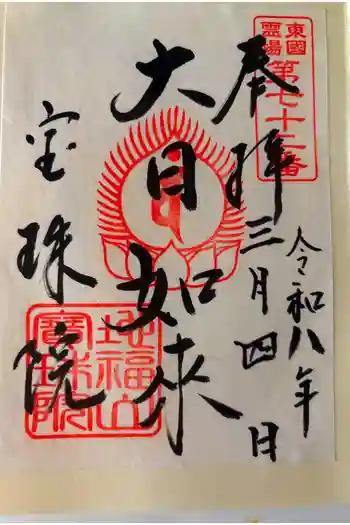 東國
霊場
第七十二番
奉拝
令和八年
三月四日
大日如来
宝珠院
地福山
寶珠院